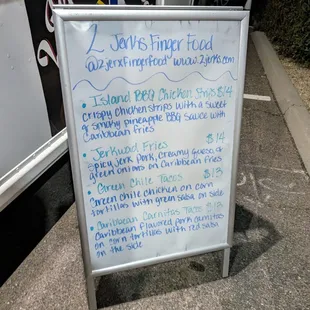 2 Jerks Finger Food
@2jerxfingerfood www.2jerks.com
Island BBQ Chicken Strips $14
crispy chicken strips with a sweet
or smoky pineapple BBQ sauce with
Caribbean fries
Jerkwad Fries $14
Spicy jerk pork, creamy queso &
green onions on Caribbean fries
Green Chile Tacos $13
Green chile chicken on corn
tortillas with green salsa on side
Caribbean Carnitas Tacos
Caribbean flavored pork carnitas
on corn tortillas with red salsa
on the side